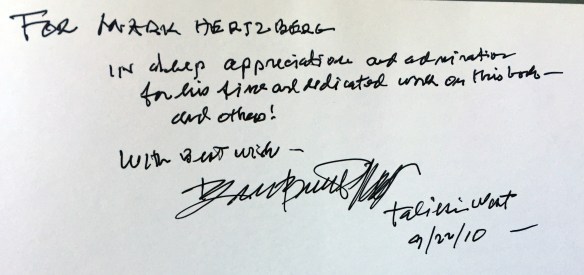 FOR MARK HERTZBERG
IN deep appreciation and admiration
for his fine and dedicated work on this book —
and others!
With Best wish —
Taliesin West
9/22/10 —